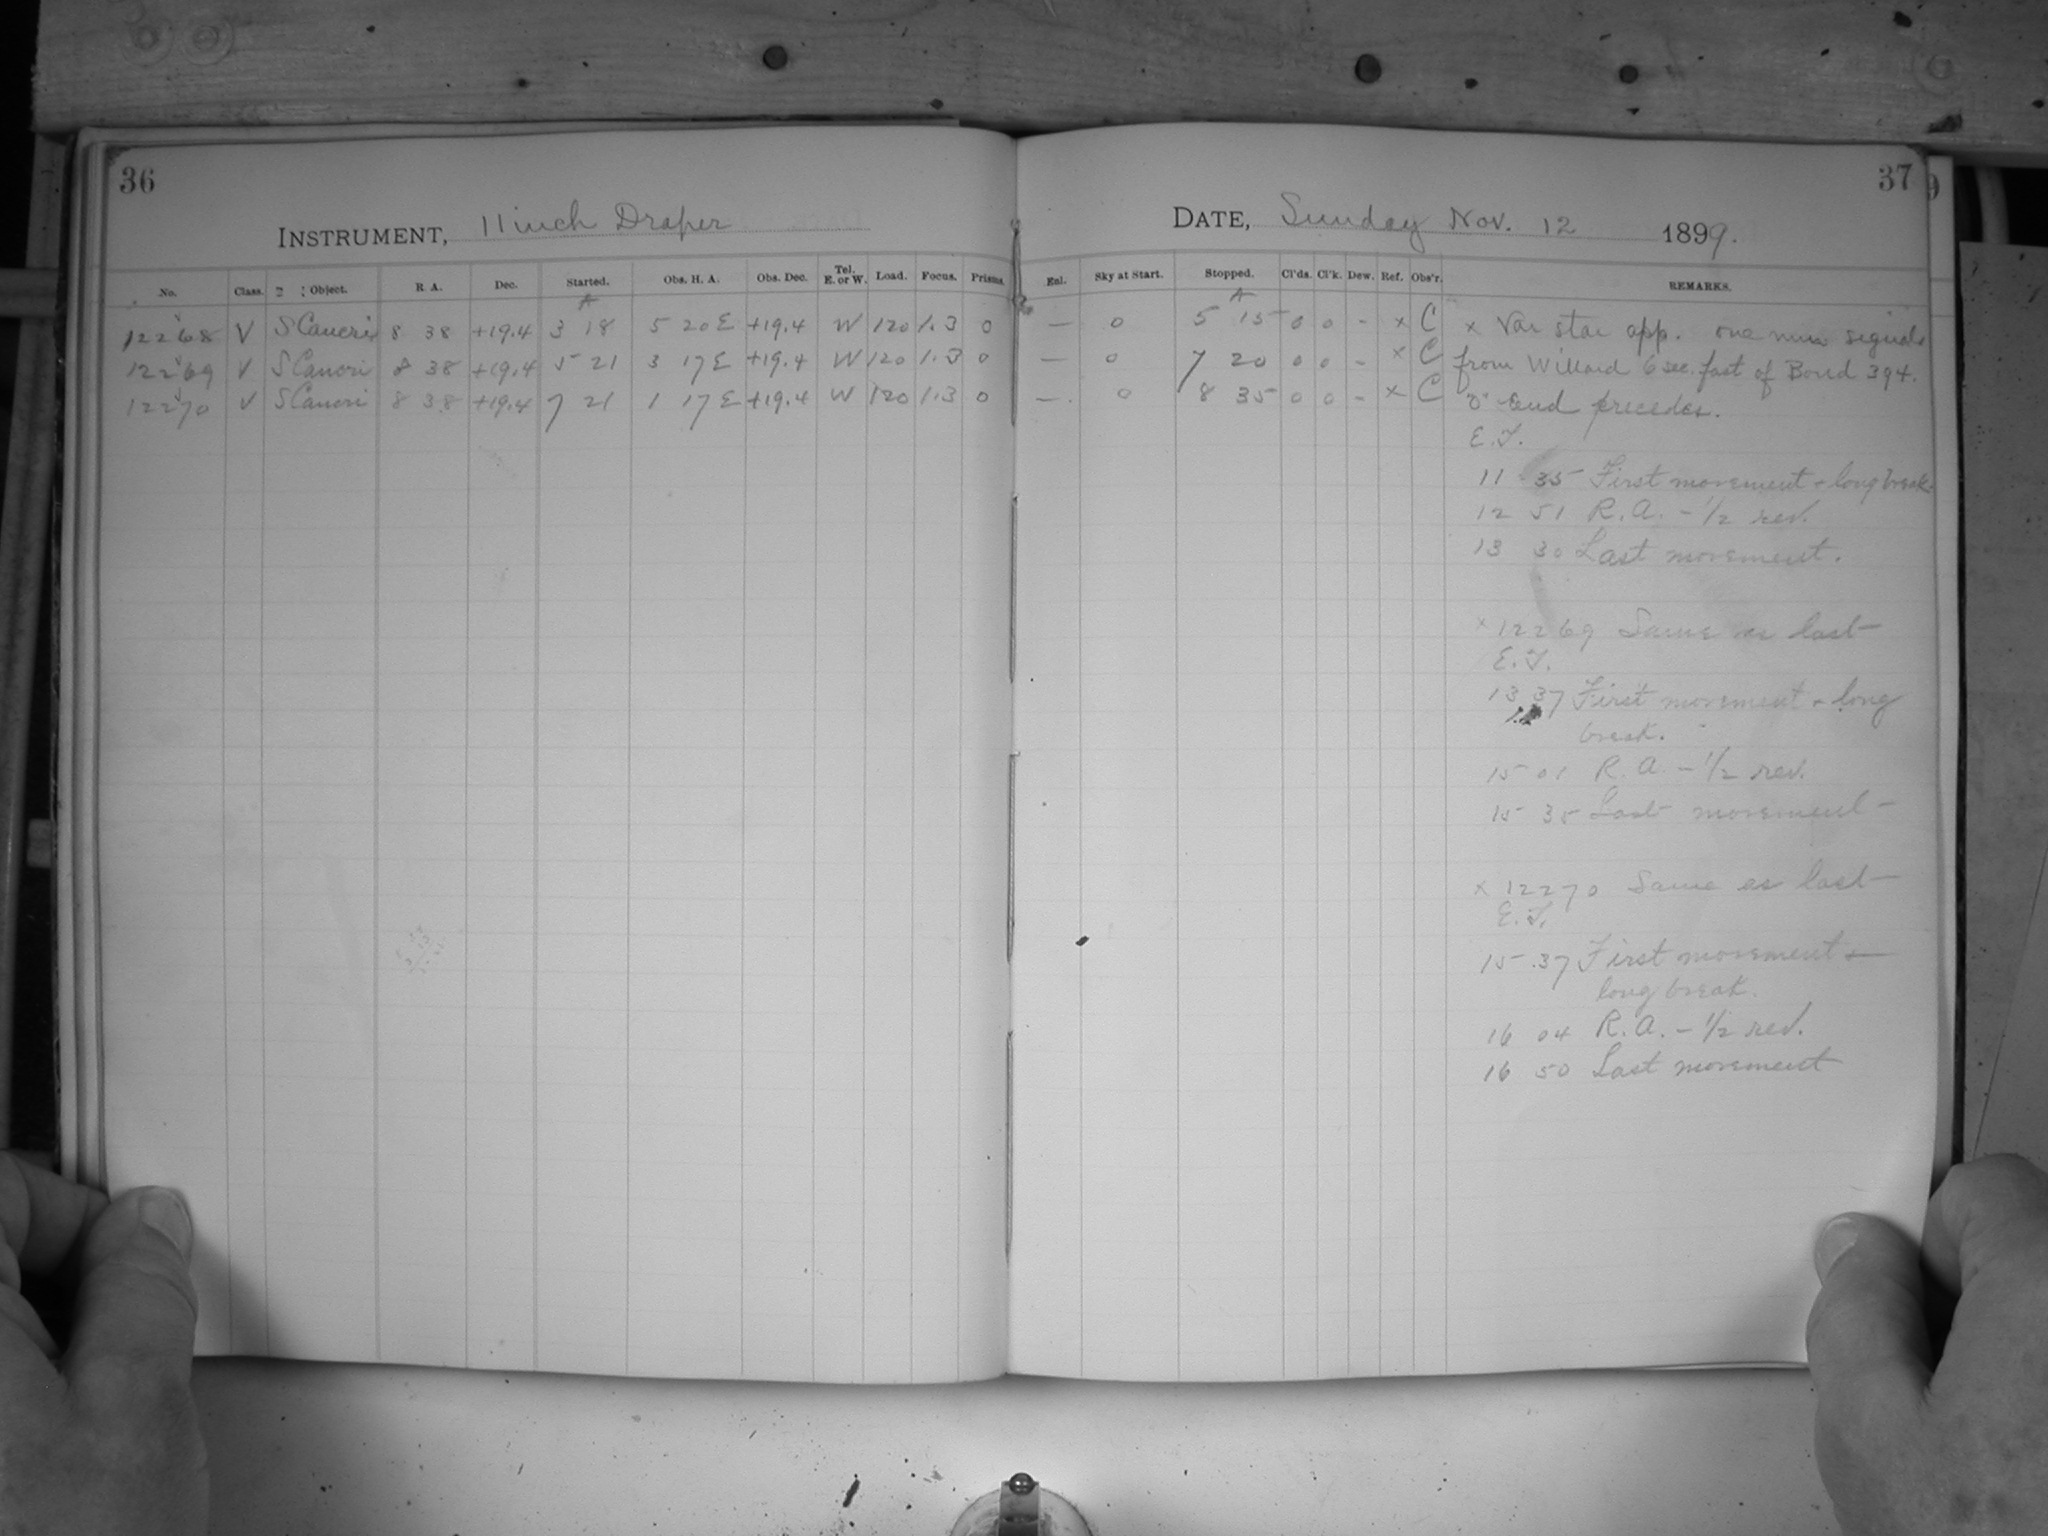 36
INSTRUMENT, 11 inch Draper
No. Class. Object. R. A. Dec. Started. Obs. H. A. Obs. Dec. Tel. E. or W. Load. Focus. Prisms.
A
12268 V S Cancri 8 38 +19.4 3 18 5 20 E +19.4 W 120 1.3 0
12269 V S Cancri 8 38 +19.4 5 21 3 17 E +19.4 W 120 1.3 0
12270 V S Cancri 8 38 +19.4 7 21 1 17 E +19.4 W 120 1.3 0
37
DATE, Sunday Nov. 12 1899.
Enl. Sky at Start. Stopped. Cl'ds. Cl'k. Dew. Ref. Obs'r. REMARKS.
A
— 0 5 15 0 0 - x C x Var star app. one min signals
— 0 7 20 0 0 - x C from Willard 6 sec. fast of Bond 394.
— 0 8 35 0 0 - x C "0" end precedes.
E.T.
11 35 First movement + long break.
12 51 R.A. - 1/2 rev.
13 30 Last movement.
x 12269 Same as last
E.T.
13 37 First movement + long
break.
15 01 R.A. - 1/2 rev.
15 35 Last movement
x 12270 Same as last
E.T.
15 37 First movement +
long break.
16 04 R.A. - 1/2 rev.
16 50 Last movement